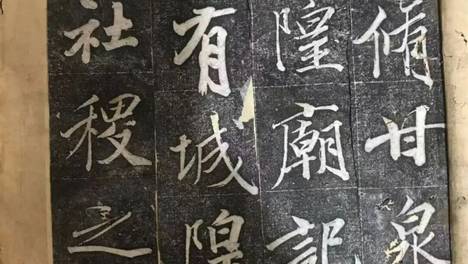 脩甘泉
隍廟記
有城隍
社稷之